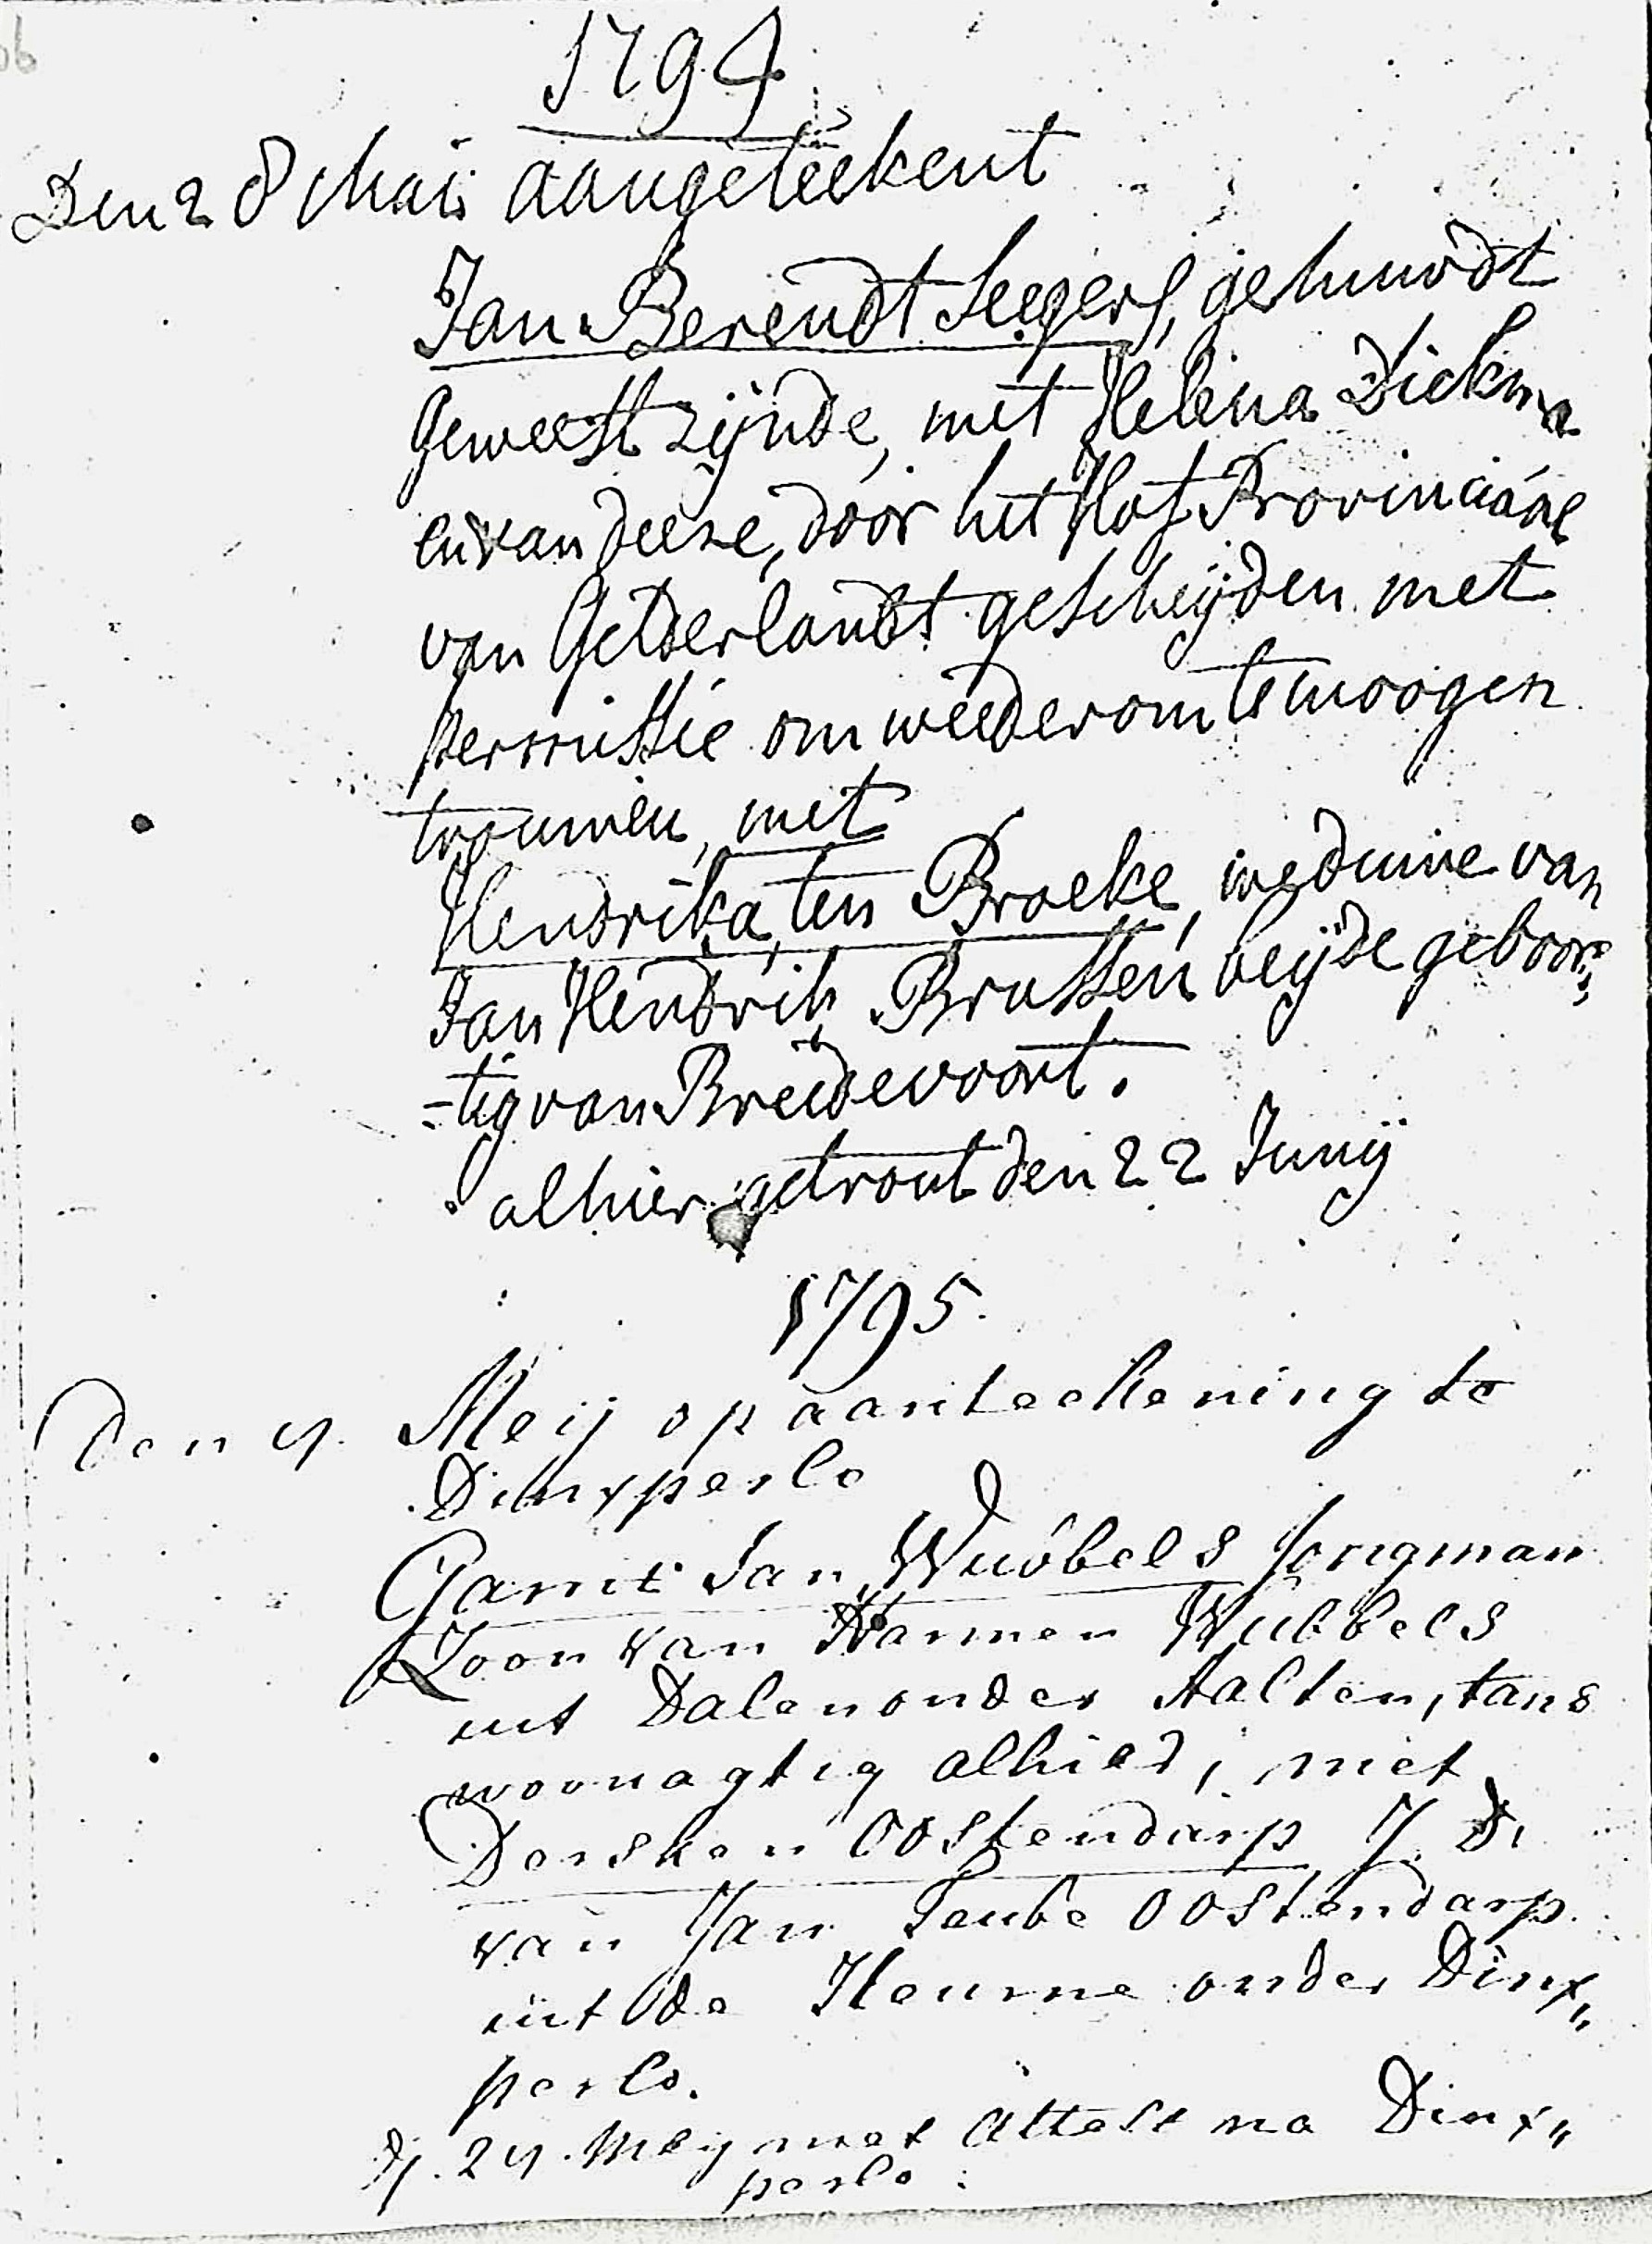 06
1794
Den 28 Mai aangeteekent
Jan Berendt Seegers, gehuwdt
Geweest zijnde, met Helena Dickma
en van deeze, door het Hof Provinciaal
van Gelderlandt gescheijden met
permissie om weederom te moogen
trouwen, met
Hendrika ten Broeke, weduwe van
Jan Hendrik Brussen beijde geboor=
=tig van Breedevoort.
alhier getrout den 22 Junij
1795.
Den 9. Meij op aanteekening te
Dinxperlo
Garrit Jan Wubbels Jongman
Zoon van Harmen Wubbels
uit Dalen onder Aalten, tans
woonagtig alhier, met
Dersken Oostendarp J. D.
van Jan Teube Oostendarp
uit de Heurne onder Dinx„
perlo.
D. 29. Meij met attest na Dinx„
perlo.